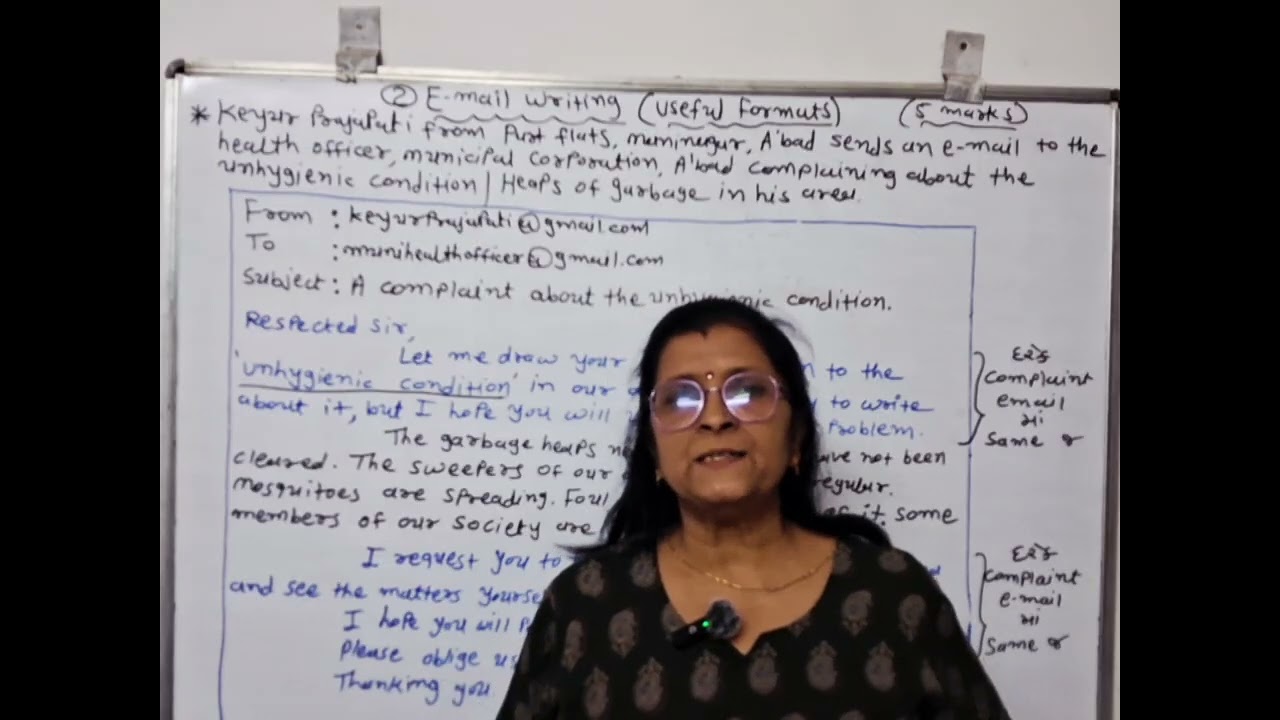 ② E-mail Writing (Useful Formats) (5 marks)
* Keyur Prajapati from Purt flats, maninagar, A'bad sends an e-mail to the
health officer, municipal corporation, A'bad complaining about the
unhygienic condition / Heaps of garbage in his area.
From : keyurprajapati@gmail.com
To : munihealthofficer@gmail.com
Subject : A complaint about the unhygienic condition.
Respected Sir,
Let me draw your n to the
'unhygienic condition' in our to write
about it, but I hope you will problem.
The garbage heaps have not been
cleared. The sweepers of our regular.
mosquitoes are spreading. Foul of it some
members of our society are
I request you to
and see the matters
I hope you will
Please oblige us
Thanking you
દરેક
complaint
email
માં
same જ
દરેક
complaint
e-mail
માં
same જ